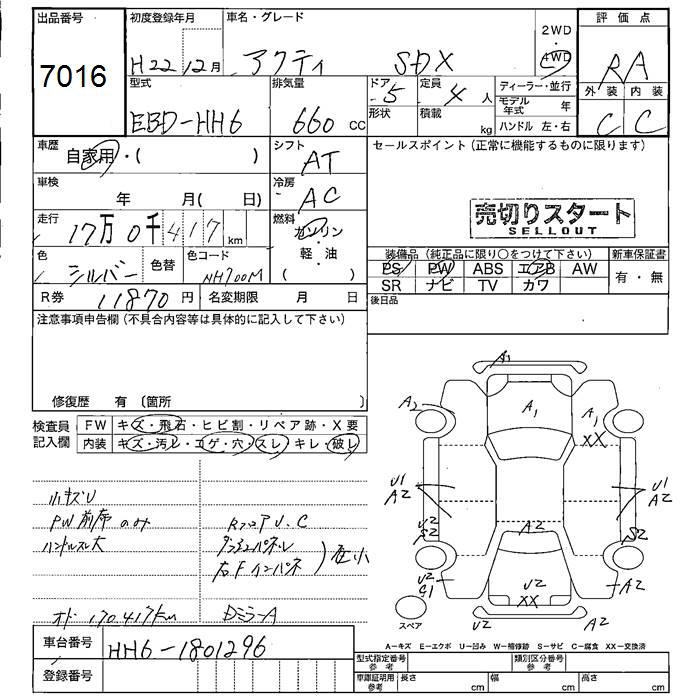 出品番号 初度登録年月 車名・グレード 2WD 評価点
7016 H22年12月 アクティ SDX 4WD RA
型式 排気量 ドア 定員 ディーラー・並行 外装 内装
EBD-HH6 660 cc 5 4 人 モデル年式 年 C C
形状 積載 kg ハンドル 左・右
車歴 自家用・( ) シフト AT セールスポイント (正常に機能するものに限ります)
車検 年 月( 日) 冷房 AC
売切りスタート
SELLOUT
走行 17万0千417km 燃料 ガソリン・軽油
装備品 (純正品に限り○をつけて下さい) 新車保証書
色 シルバー 色替 色コード NH700M
PS PW ABS エアB AW 有・無
SR ナビ TV カワ
R券 11870円 名変期限 月 日 後日品
注意事項申告欄 (不具合内容等は具体的に記入して下さい)
修復歴 有 (箇所 )
検査員記入欄 FW キズ・飛石・ヒビ割・リペア跡・X要
内装 キズ・汚レ・コゲ・穴・スレ・キレ・破レ
小キズU
PW前席のみ RフロアU、C
ハンドルスレ大
右Fインパネ
オド 170.417km DミラーA
A1
A2 A1 A1
XX
U1 U1
A2 A2
U2 A2
S2 S2
U2
C1 U2 A2
XX
スペア U2 A2
A－キズ E－エクボ U－凹み W－補修跡 S－サビ C－腐食 XX－交換済
車台番号 HH6-1801296
型式指定番号 参考 類別区分番号 参考
登録番号 車庫証明用 参考 長さ cm 幅 cm 高さ cm